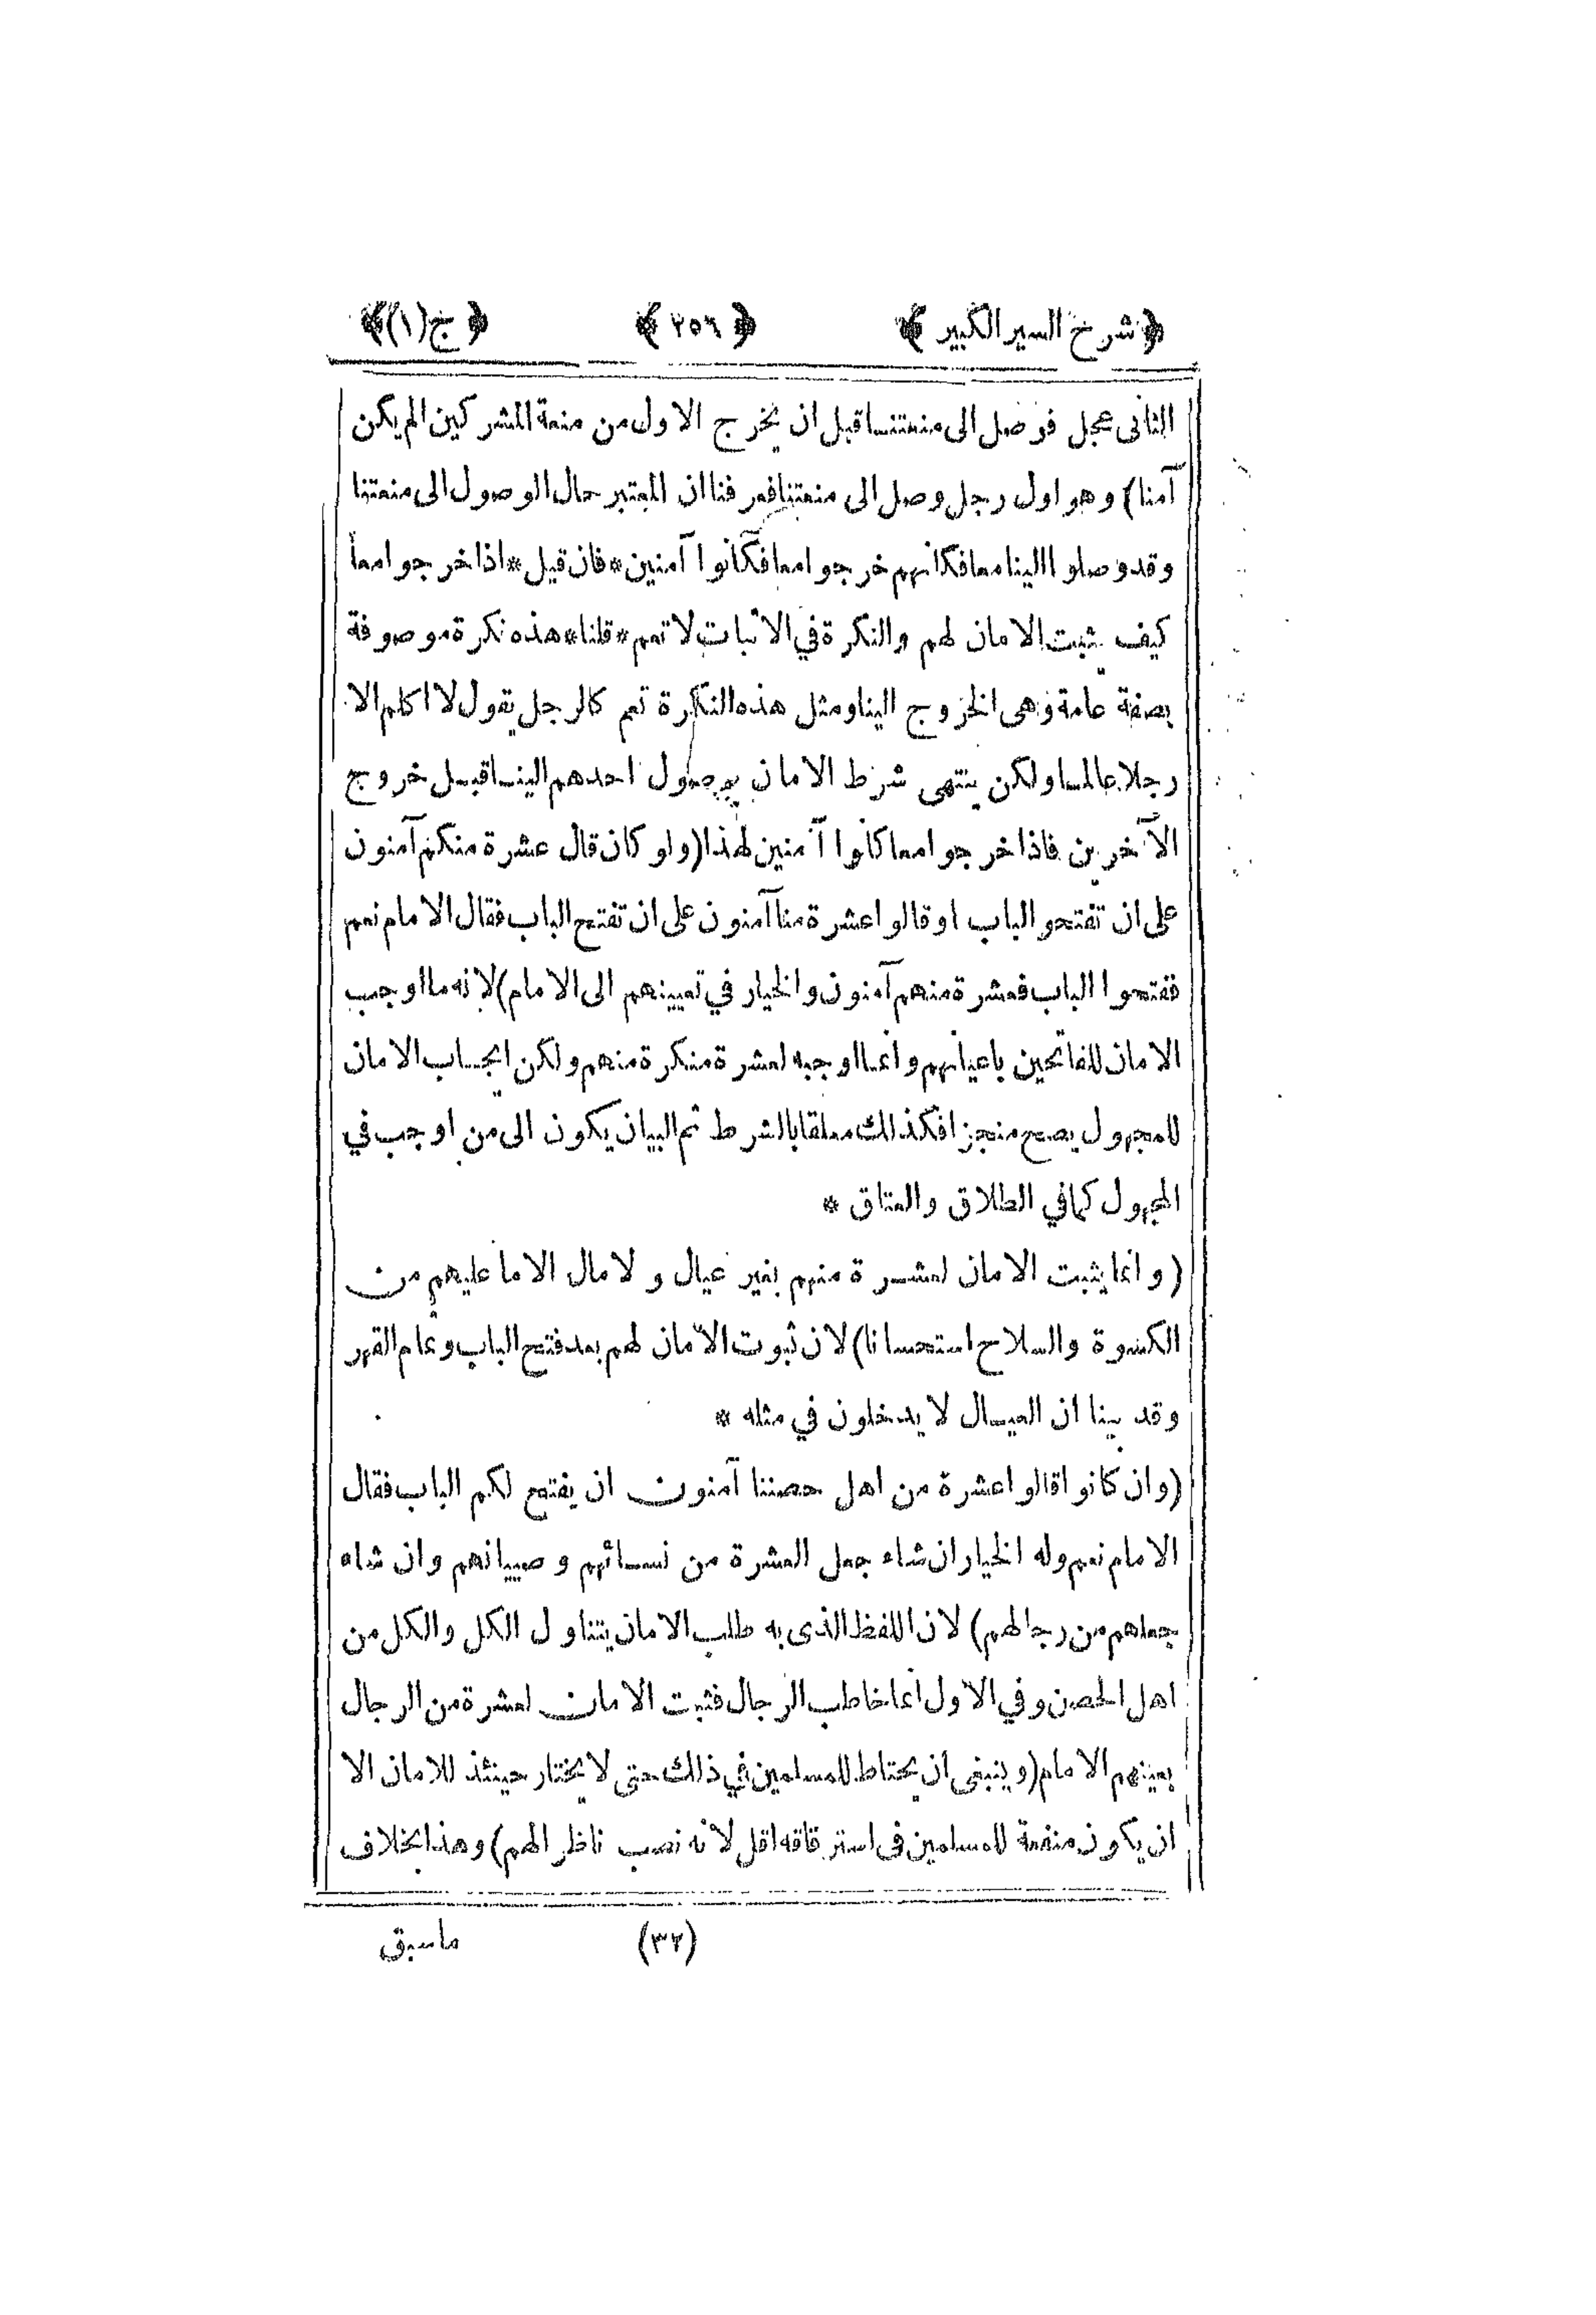 ﴿ شرح السير الكبير ﴾ ﴿ ٢٥٦ ﴾ ﴿ ج (١) ﴾
الثانى عجل فوصل الى منعتنا قبل ان يخرج الاول من منعة المشركين الم يكن
آمنا) وهو اول رجل وصل الى منعتنا فعرفنا ان المعتبر حال الوصول الى منعتنا
وقد وصلوا الينا معا فكانهم خرجوا معا فكانوا آمنين * فان قيل * اذا خرجوا معا
كيف يثبت الامان لهم والنكرة في الاثبات لا تعم * قلنا * هذه نكرة موصوفة
بصفة عامة وهى الخروج الينا ومثل هذه النكرة تعم كالرجل يقول لا اكلم الا
رجلا عالما ولكن ينتهى شرط الامان بوصول احدهم الينا قبل خروج
الآخرين فاذا خرجوا معا كانوا آمنين لهذا (ولو كان قال عشرة منكم آمنون
على ان تفتحوا الباب او قالوا عشرة منا آمنون على ان تفتح الباب فقال الامام نعم
ففتحوا الباب فعشرة منهم آمنون والخيار في تعيينهم الى الامام) لانه ما اوجب
الامان للفاتحين باعيانهم وانما اوجبه لعشرة منكرة منهم ولكن ايجاب الامان
للمجهول يصح منجزا فكذلك معلقا بالشرط ثم البيان يكون الى من اوجب في
المجهول كما في الطلاق والعتاق *
(وانما يثبت الامان لعشرة منهم بغير عيال ولا مال الا ما عليهم من
الكسوة والسلاح استحسانا) لان ثبوت الامان لهم بعد فتح الباب وتمام القهر
وقد بينا ان العيال لا يدخلون في مثله *
(وان كانوا قالوا عشرة من اهل حصننا آمنون ان يفتح لكم الباب فقال
الامام نعم وله الخيار ان شاء جعل العشرة من نسائهم وصبيانهم وان شاء
جعلهم من رجالهم) لان اللفظ الذى به طلب الامان يتناول الكل والكل من
اهل الحصن وفي الاول انما خاطب الرجال فثبت الامان لعشرة من الرجال
بعينهم الامام (وينبغى ان يحتاط للمسلمين في ذلك حتى لا يختار حينئذ للامان الا
ان يكون منفعة للمسلمين فى استرقاقه اقل لانه نصب ناظرا لهم) وهذا بخلاف
(٣٢) ما سبق